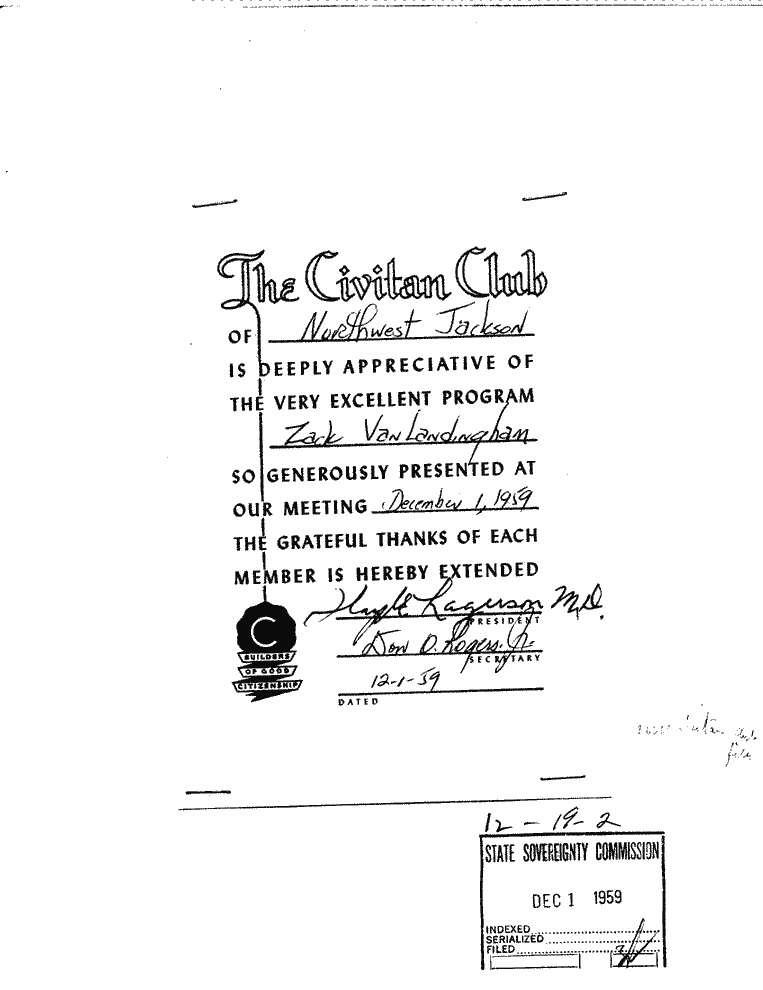 The Civitan Club
OF Northwest Jackson
IS DEEPLY APPRECIATIVE OF
THE VERY EXCELLENT PROGRAM
Zack VanLandingham
SO GENEROUSLY PRESENTED AT
OUR MEETING December 1, 1959
THE GRATEFUL THANKS OF EACH
MEMBER IS HEREBY EXTENDED
M.D.
PRESIDENT
Don D. Rogers, Jr.
SECRETARY
12-1-59
DATED
C
BUILDERS
OF GOOD
CITIZENSHIP
file
12 - 19 - 2
STATE SOVEREIGNTY COMMISSION
DEC 1 1959
INDEXED
SERIALIZED
FILED